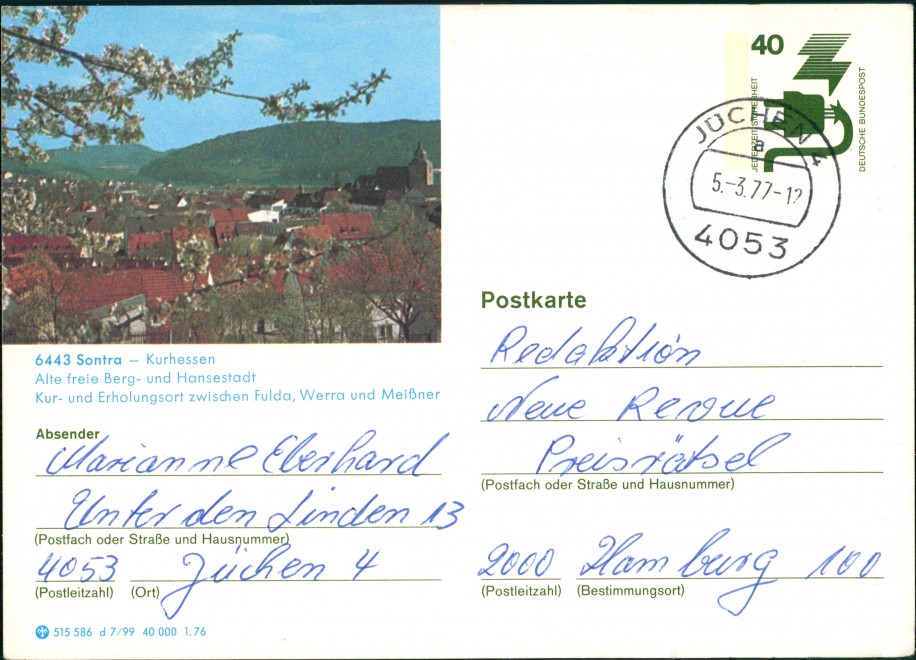 40
JEDERZEIT SICHERHEIT
DEUTSCHE BUNDESPOST
JÜCHEN 4
a
5.-3.77-12
4053
6443 Sontra – Kurhessen
Alte freie Berg- und Hansestadt
Kur- und Erholungsort zwischen Fulda, Werra und Meißner
Absender
Marianne Eberhard
Unter den Linden 13
(Postfach oder Straße und Hausnummer)
4053 Jüchen 4
(Postleitzahl) (Ort)
515 586 d 7/99 40 000 1.76
Postkarte
Redaktion
Neue Revue
Preisrätsel
(Postfach oder Straße und Hausnummer)
2000 Hamburg 100
(Postleitzahl) (Bestimmungsort)